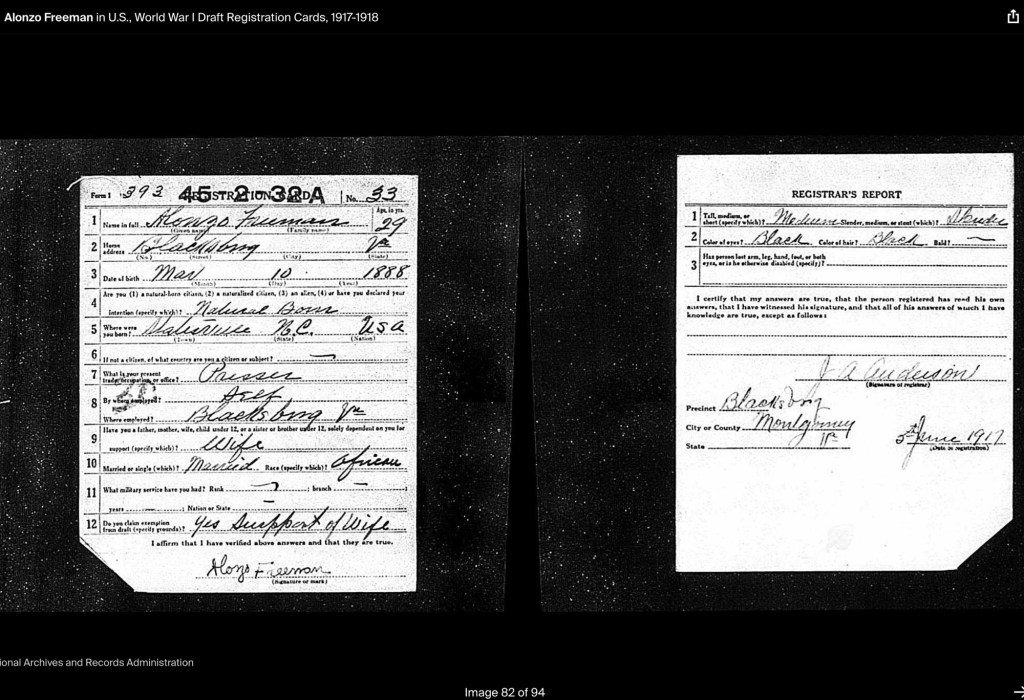 Alonzo Freeman in U.S., World War I Draft Registration Cards, 1917-1918
Form 1 393 REGISTRATION CARD No. 33
45-2-32 A
Age, in yrs.
1 Name in full Alonzo Freeman 29
(Given name) (Family name)
2 Home address Blacksburg Va
(No.) (Street) (City) (State)
3 Date of birth Mar 10 1888
(Month) (Day) (Year)
4 Are you (1) a natural-born citizen, (2) a naturalized citizen, (3) an alien, (4) or have you declared your
intention (specify which)? Natural Born
5 Where were you born? Statesville N.C. USA
(Town) (State) (Nation)
6 If not a citizen, of what country are you a citizen or subject? —
7 What is your present trade, occupation, or office? Presser
8 By whom employed? Self
Where employed? Blacksburg Va
9 Have you a father, mother, wife, child under 12, or a sister or brother under 12, solely dependent on you for
support (specify which)? Wife
10 Married or single (which)? Married Race (specify which)? African
11 What military service have you had? Rank — ; branch — ;
years — ; Nation or State —
12 Do you claim exemption from draft (specify grounds)? Yes Suspport of Wife
I affirm that I have verified above answers and that they are true.
Alonzo Freeman
(Signature or mark)
REGISTRAR'S REPORT
1 Tall, medium, or short (specify which)? Medium Slender, medium, or stout (which)? Slender
2 Color of eyes? Black Color of hair? Black Bald? —
3 Has person lost arm, leg, hand, foot, or both
eyes, or is he otherwise disabled (specify)?
I certify that my answers are true, that the person registered has read his own
answers, that I have witnessed his signature, and that all of his answers of which I have
knowledge are true, except as follows:
J A Anderson
(Signature of registrar)
Precinct Blacksburg
City or County Montgomery
State Va
5th June 1917
(Date of registration)
ional Archives and Records Administration
Image 82 of 94